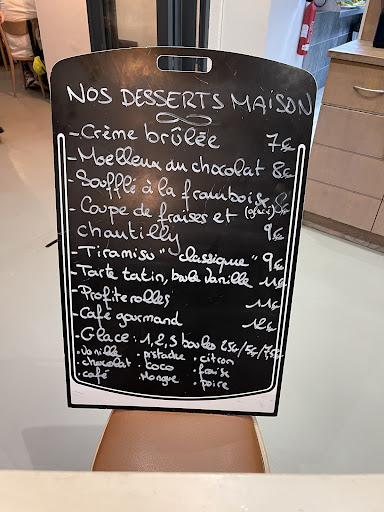 NOS DESSERTS MAISON
-Crème brûlée 7€
-Moelleux au chocolat 8€
-Soufflé à la framboise
-Coupe de fraises et
chantilly 9€
-Tiramisu "classique" 9€
-Tarte tatin, boule vanille 11€
-Profiterolles 11€
-Café gourmand 12€
-Glace: 1, 2, 3 boules 2,5€/5€/7,5€
• vanille • pistache • citron
• chocolat • coco • fraise
• café • Mangue • poire